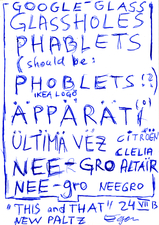 GOOGLE-GLASS
GLASSHOLES
PHABLETS
(should be:
PHOBLETS!?)
IKEA LOGO
ÄPPÄRÄT(i)
ÚLTIMA VEZ CITROËN
CLELIA
NEE-GRO ALTAÏR
NEE-gro NEEGRO
"THIS and THAT" 24 VII B
NEW PALTZ